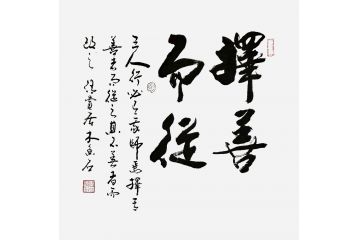 擇善
而從
三人行必有我師焉擇其
善者而從之其不善者而
改之